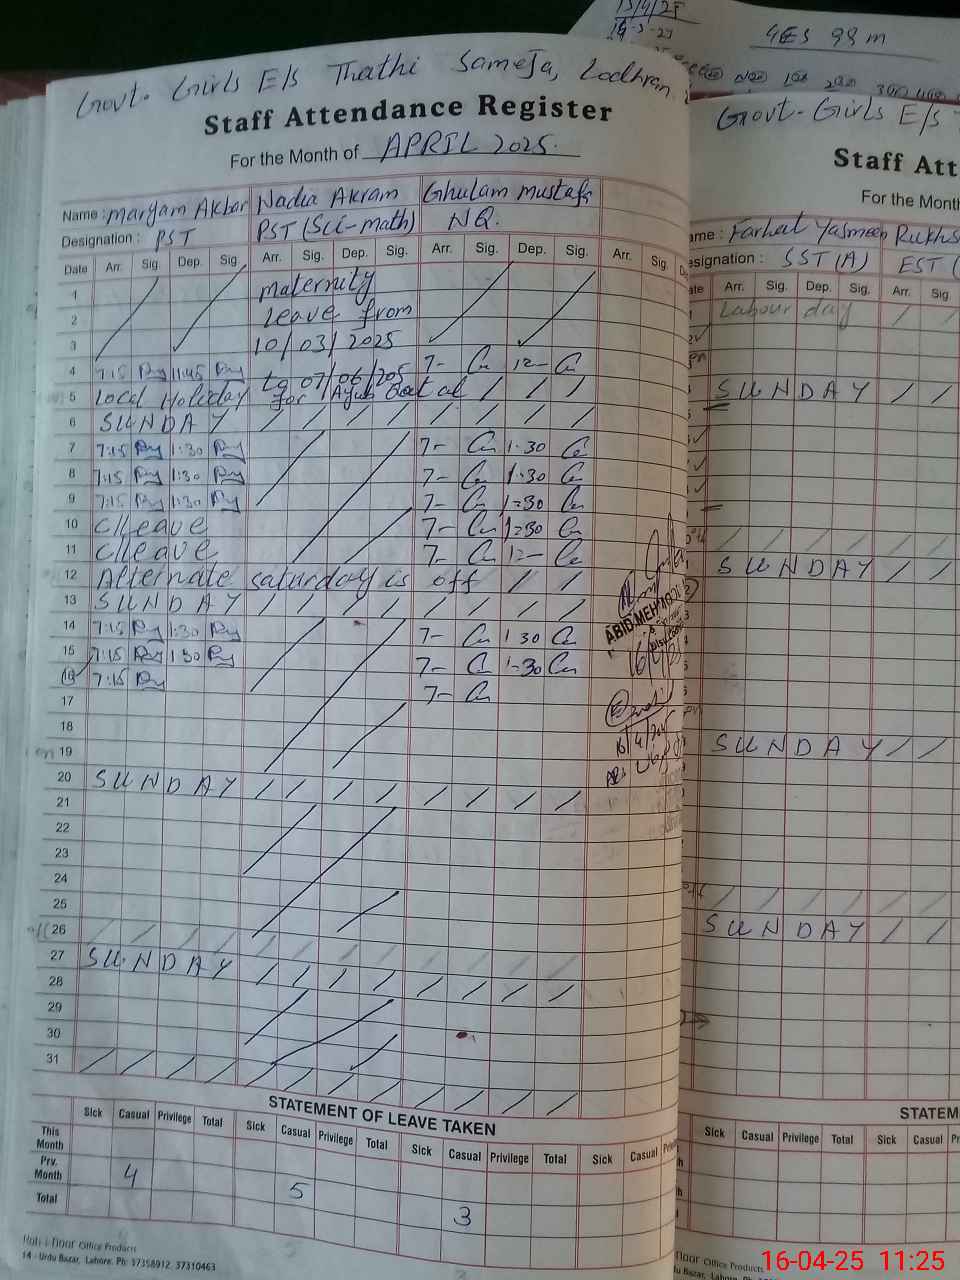 13/4/25
4ES 99 m
Govt. Girls E/S Thathi Sameja, Lodhran
Staff Attendance Register
For the Month of APRIL 2025.
Name : Maryam Akbar Nadia Akram Ghulam Mustafa
Designation : PST PST (Sci-math) NQ.
Date Arr. Sig. Dep. Sig. Arr. Sig. Dep. Sig. Arr. Sig. Dep. Sig. Arr. Sig.
1 maternity
2 leave from
3 10/03/2025
4 7:15 11:45 to 07/06/205 7- 12-
5 Local Holiday for Ayub
6 SUNDAY
7 7:15 1:30 7- 1-30
8 7:15 1:30 7- 1-30
9 7:15 1:30 7- 1=30
10 C/leave 7- 1=30
11 C/leave 7- 12-
12 Alternate saturday is off
13 SUNDAY
14 7:15 1:30 7- 1 30
15 7:15 1:30 7- 1-30
16 7:15 7-
17
18
19
20 SUNDAY
21
22
23
24
25
off 26
27 SUNDAY
28
29
30
31
16/4/25
STATEMENT OF LEAVE TAKEN
Sick Casual Privilege Total Sick Casual Privilege Total Sick Casual Privilege Total Sick Casual
This Month
Prv. Month 4 5 3
Total
Office Products
14 - Urdu Bazar, Lahore. Ph: 37358912, 37310463
Govt-Girls E/S
Staff Att
For the Month
ame : Farhat Yasmeen Rukhs
esignation : SST (A) EST (
Arr. Sig. Dep. Sig. Arr. Sig.
Labour day
SUNDAY
SUNDAY
SUNDAY
SUNDAY
STATEM
Sick Casual Privilege Total Sick Casual
Door Office Products
du Bazar, Lahore.
16-04-25 11:25